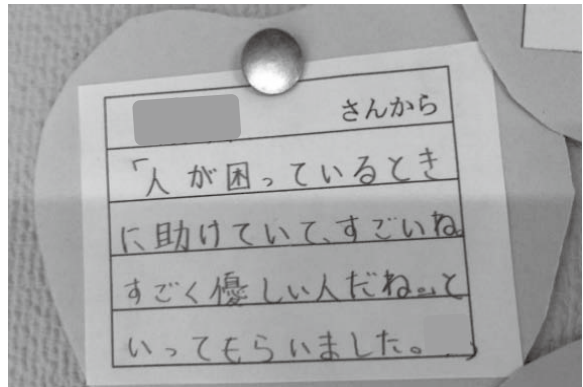 さんから
「人が困っているとき
に助けていて、すごいね
すごく優しい人だね。」と
いってもらいました。